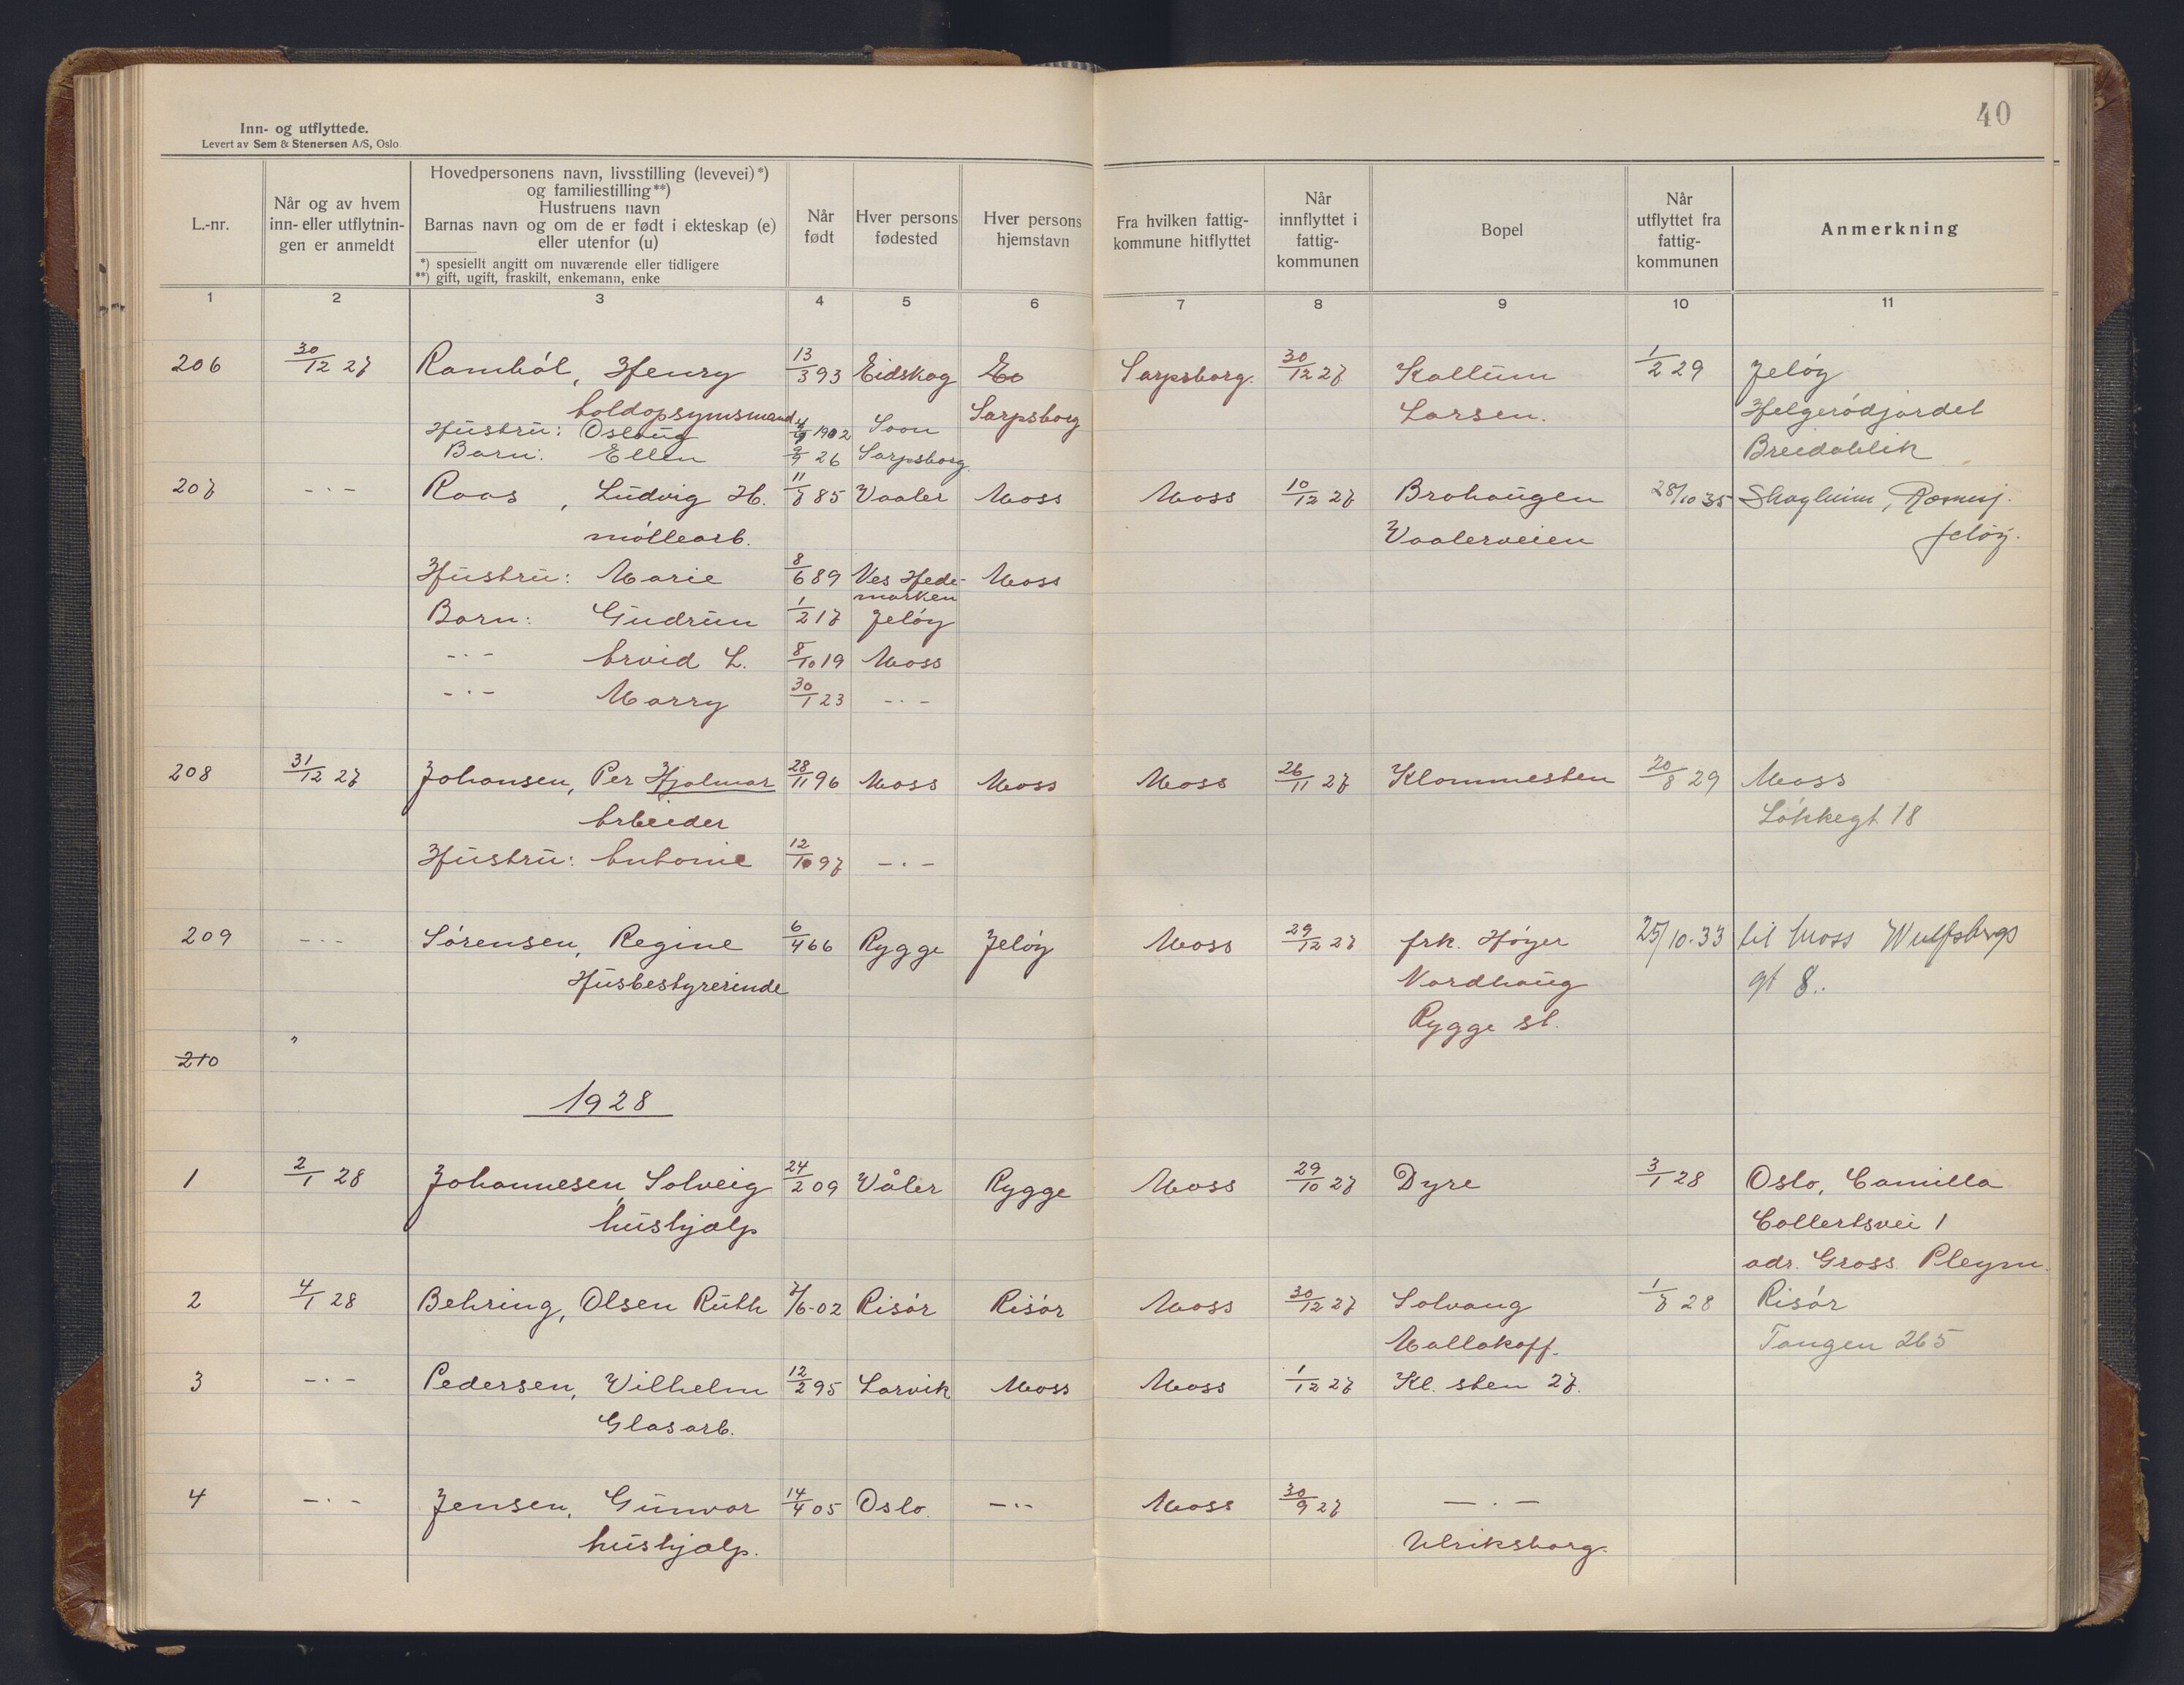 40
Inn- og utflyttede.
Levert av Sem & Stenersen A/S, Oslo.
L.-nr.
Når og av hvem inn- eller utflytnin-gen er anmeldt
Hovedpersonens navn, livsstilling (levevei)*)
og familiestilling**)
Hustruens navn
Barnas navn og om de er født i ekteskap (e)
eller utenfor (u)
*) spesiellt angitt om nuværende eller tidligere
**) gift, ugift, fraskilt, enkemann, enke
Når født
Hver persons fødested
Hver persons hjemstavn
Fra hvilken fattig-kommune hitflyttet
Når innflyttet i fattig-kommunen
Bopel
Når utflyttet fra fattig-kommunen
Anmerkning
1 2 3 4 5 6 7 8 9 10 11
206 30/12 27 Rambøl, Henry 13/3 93 Eidskog Sarpsborg. 30/12 27 Kallum 1/2 29 Jeløy
Sarpsborg Larsen. Helgerødjordet
Hustru: Oslaug 1902 Soon
Barn: Ellen 26 Sarpsborg. Breidablik
207 -·- Roos, Ludvig H. 11/7 85 Vaaler Moss Moss 10/12 27 Brohaugen 28/10 35 Skogheim,
møllearb. Vaalerveien Jeløy.
Hustru: Marie 8/6 89 Ves Hede-marken Moss
Barn: Gudrun 1/2 17 Jeløy
-·- Arvid L. 8/10 19 Moss
-·- Marry 30/1 23 -·-
208 31/12 27 Johansen, Per Hjalmar 28/11 96 Moss Moss Moss 26/11 27 Klommesten 20/8 29 Moss
Arbeider Løkkegt 18
Hustru: Antonie 12/10 97 -·-
209 -·- Sørensen, Regine 6/4 66 Rygge Jeløy Moss 29/12 27 frk. Høyer 25/10-33 til Moss Wulfsbergs
Husbestyrerinde Nordhaug gt 8.
Rygge st.
210 "
1928
1 2/1 28 Johannesen, Solveig 24/2 09 Våler Rygge Moss 29/10 27 Dyre 3/1 28 Oslo, Camilla
hushjælp Collertsvei 1
adr. Gross. Pleym.
2 4/1 28 Behring, Olsen Ruth 7/6-02 Risør Risør Moss 30/12 27 Solvang 1/7 28 Risør
Mallakoff. Tangen 265
3 -·- Pedersen, Wilhelm 12/2 95 Larvik Moss Moss 1/12 27 Kl. sten 27.
Glasarb.
4 -·- Jensen, Gunvor 14/4 05 Oslo. -·- Moss 30/9 27 -·-
hushjælp. Ulriksborg.